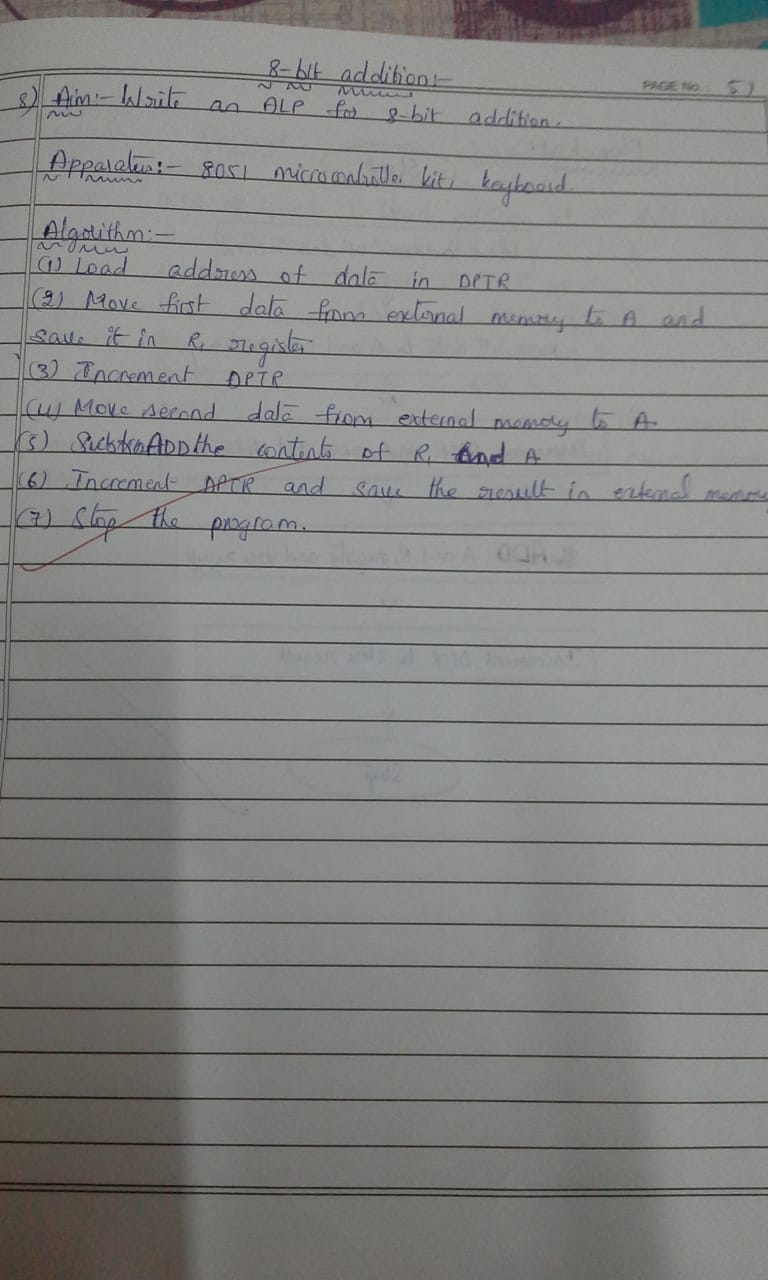 8-bit addition:-
PAGE NO.: 51
8) Aim:- Write an ALP for 8-bit addition.
Apparatus:- 8051 microcontroller kit, keyboard.
Algorithm:-
(1) Load address of data in DPTR
(2) Move first data from external memory to A and
save it in R1 register
(3) Increment DPTR
(4) Move second data from external memory to A.
(5) ADD the contents of R1 and A
(6) Increment DPTR and save the result in external memory
(7) Stop the program.